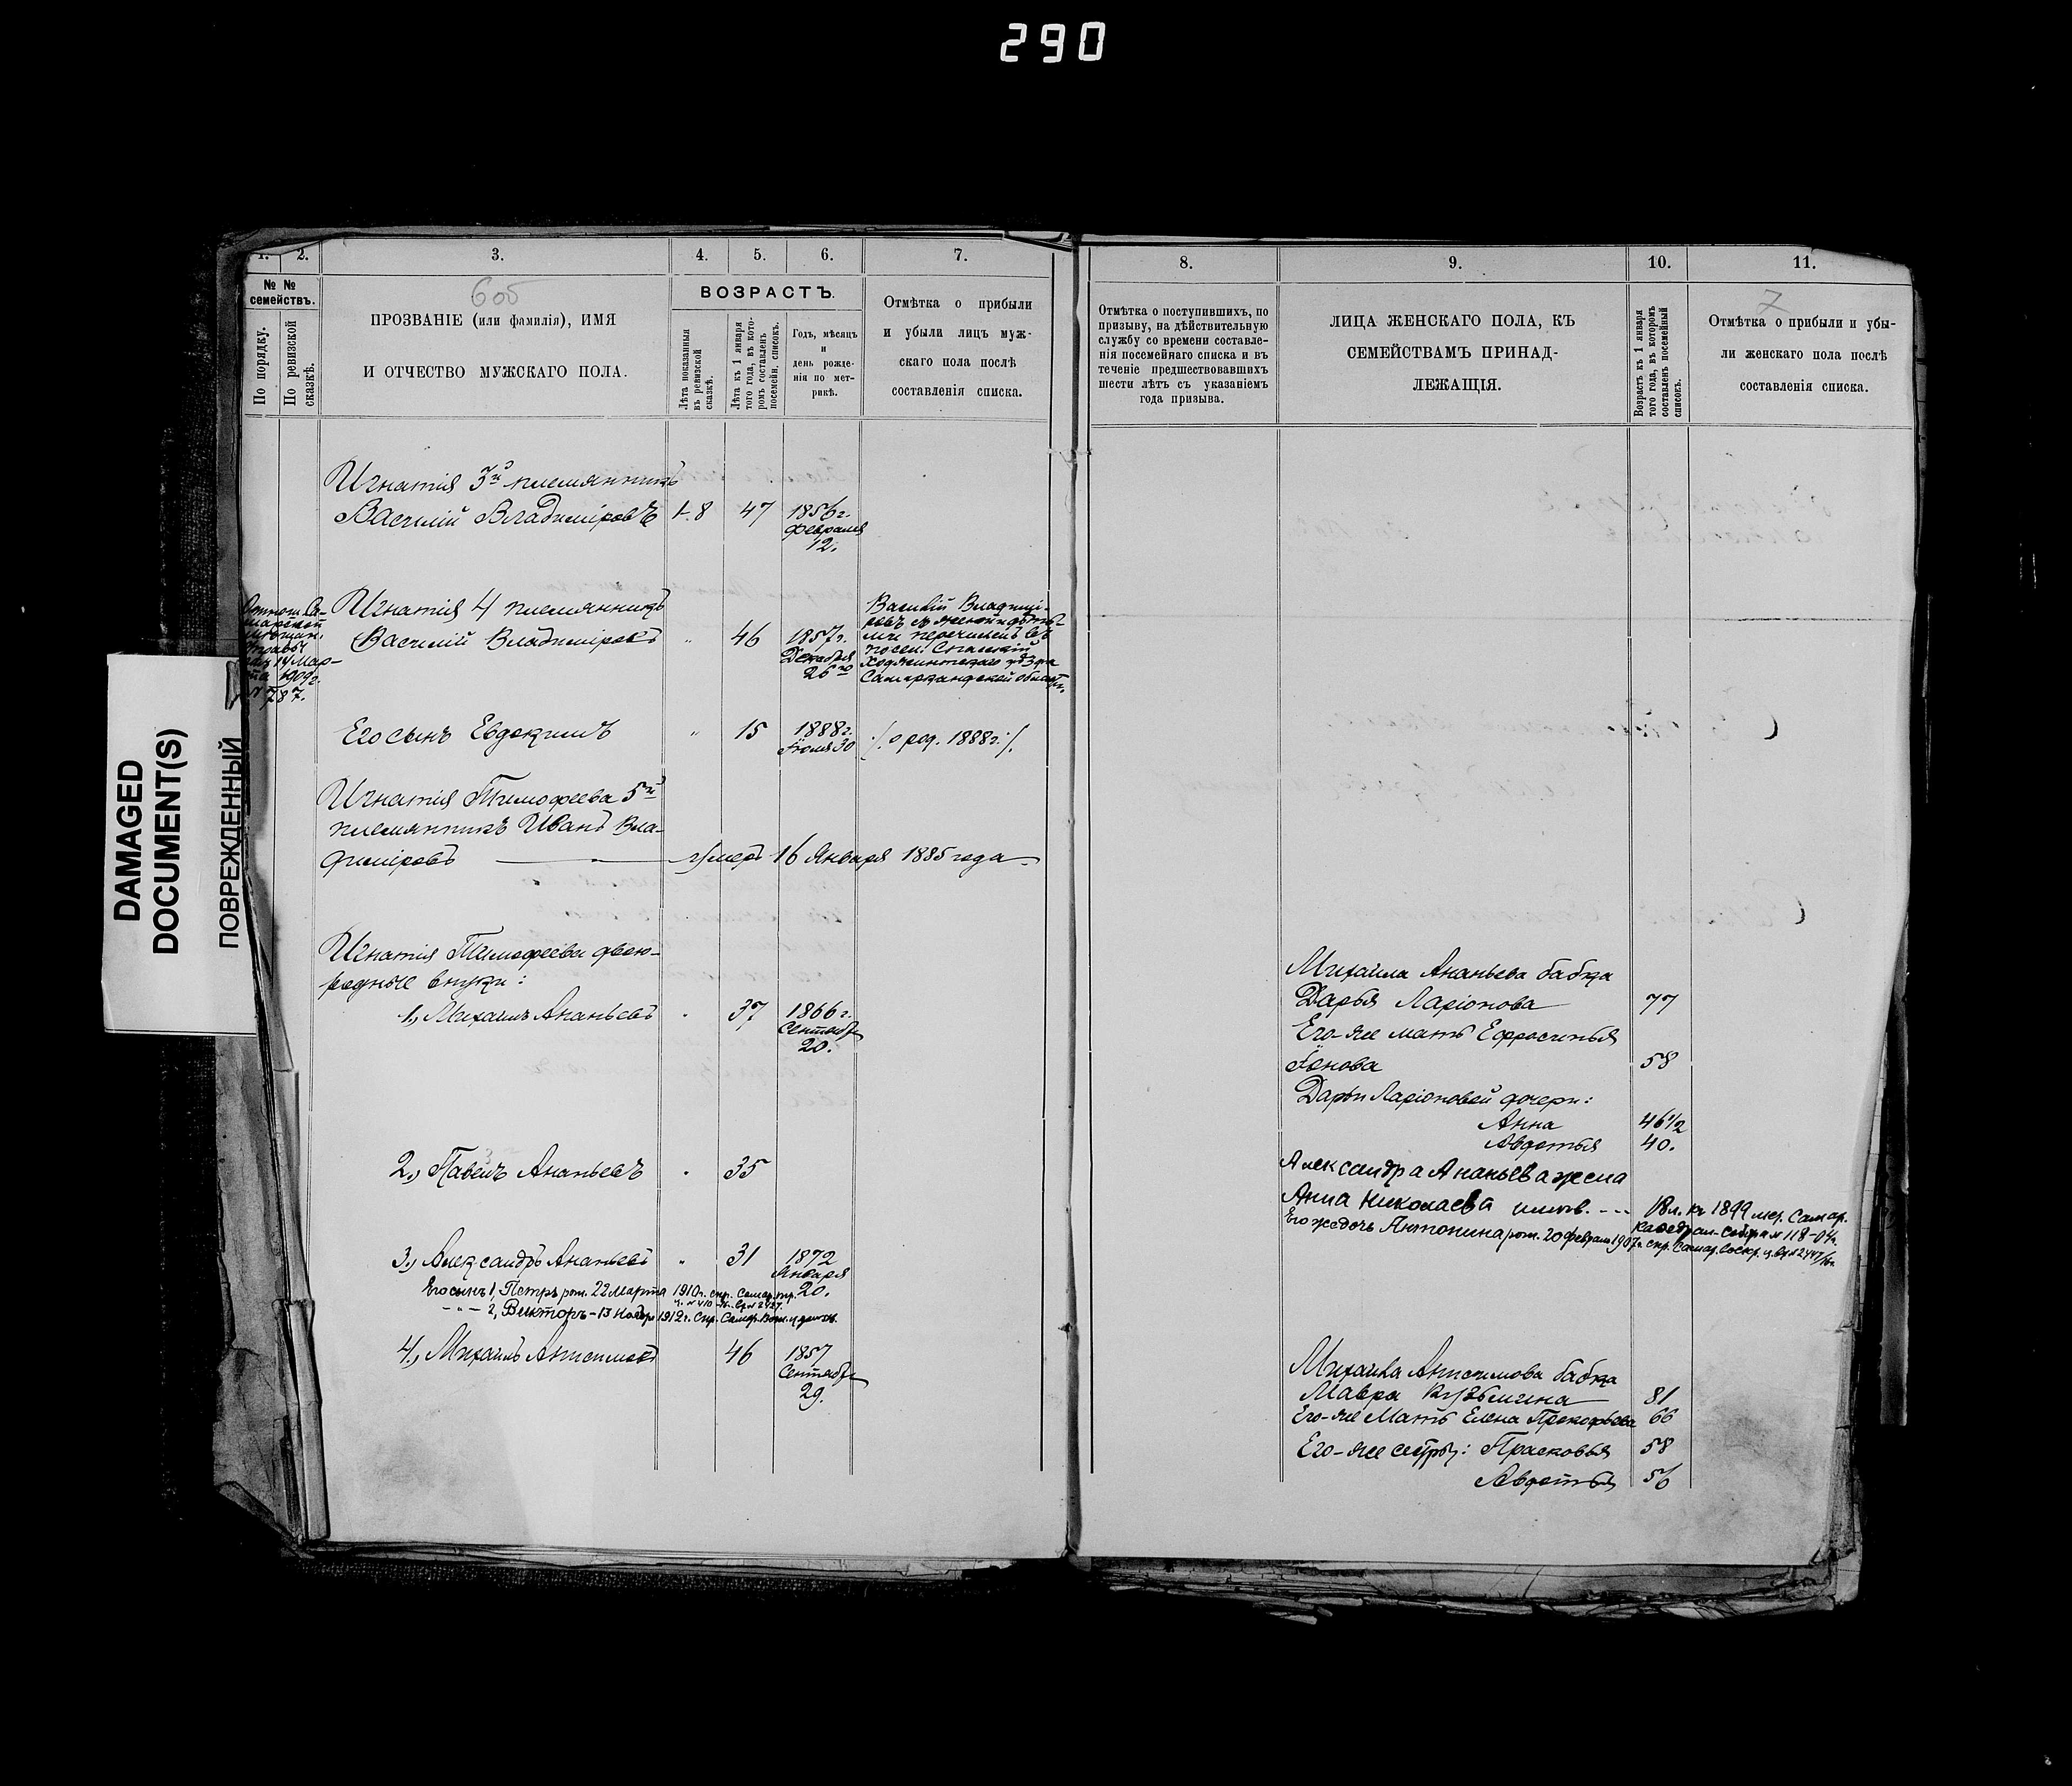 290
1.
2.
3.
4.
5.
6.
7.
№ №
семействъ.
По порядку.
По ревизской
сказкѣ.
605
ПРОЗВАНІЕ (или фамилія), ИМЯ
И ОТЧЕСТВО МУЖСКАГО ПОЛА.
ВОЗРАСТЪ.
Лѣта показанныя
въ ревизской
сказкѣ.
Лѣта къ 1 января
того года, въ кото-
ромъ составленъ
посемейн. списокъ.
Годъ, мѣсяцъ
и
день рожде-
нія по мет-
рикѣ.
Отмѣтка о прибыли
и убыли лицъ муж-
скаго пола послѣ
составленія списка.
Игнатія 3й племянникъ
Василій Владиміровъ 1-8 47 1856 г.
Февраля
12.
Игнатія 4 племянникъ
Василій Владиміровъ " 46 1857 г.
Декабря
26го
Василій Владимі-
ровъ съ женою и дѣть-
ми перечисленъ въ
посел. Спасскій
Ходжентскаго уѣзда
Самаркандской области.
14 Мар-
та 1909 г.
№ 787.
Его сынъ Евдокимъ " 15 1888 г.
Іюля 30
/. о род. 1888 г. /.
Игнатія Тимофеева 5й
племянникъ Иванъ Вла-
диміровъ — умеръ 16 Января 1885 года
Игнатія Тимофеева двою-
родные внуки:
1., Михаилъ Ананьевъ " 37 1866 г.
Сентября
20.
2., Павелъ Ананьевъ " 35
3., Александръ Ананьевъ " 31 1872
Января
20.
Его сынъ 1, Петръ род. 22 Марта 1910 г. спр. Самар.
— " — 2, Викторъ — 13 Ноябр. 1912 г. спр. Самар.
4., Михаилъ Анисимовъ 46 1857
Сентября
29.
8.
9.
10.
11.
7
Отмѣтка о поступившихъ, по
призыву, на дѣйствительную
службу со времени составле-
нія посемейнаго списка и въ
теченіе предшествовавшихъ
шести лѣтъ съ указаніемъ
года призыва.
ЛИЦА ЖЕНСКАГО ПОЛА, КЪ
СЕМЕЙСТВАМЪ ПРИНАД-
ЛЕЖАЩІЯ.
Возрастъ къ 1 января
того года, въ которомъ
составленъ посемейный
списокъ.
Отмѣтка о прибыли и убы-
ли женскаго пола послѣ
составленія списка.
Михаила Ананьева бабка
Дарья Ларіонова 77
Его-же мать Ефросинья
Іонова 58
Дарьи Ларіоновой дочери:
Анна 46 1/2
Авдотья 40.
Александра Ананьева жена
Анна Николаева 18 л. въ 1899 Самар.
Его же дочь Антонина род. 20 Февраля 1907 г. спр. Самар. Воскр. ц.
Михаила Анисимова бабка
Мавра Кузьмина 81
Его-же Мать Елена Прокофьева 66
Его-же сестры: Прасковья 58
Авдотья 56
DAMAGED
DOCUMENT(S)
ПОВРЕЖДЕННЫЙ